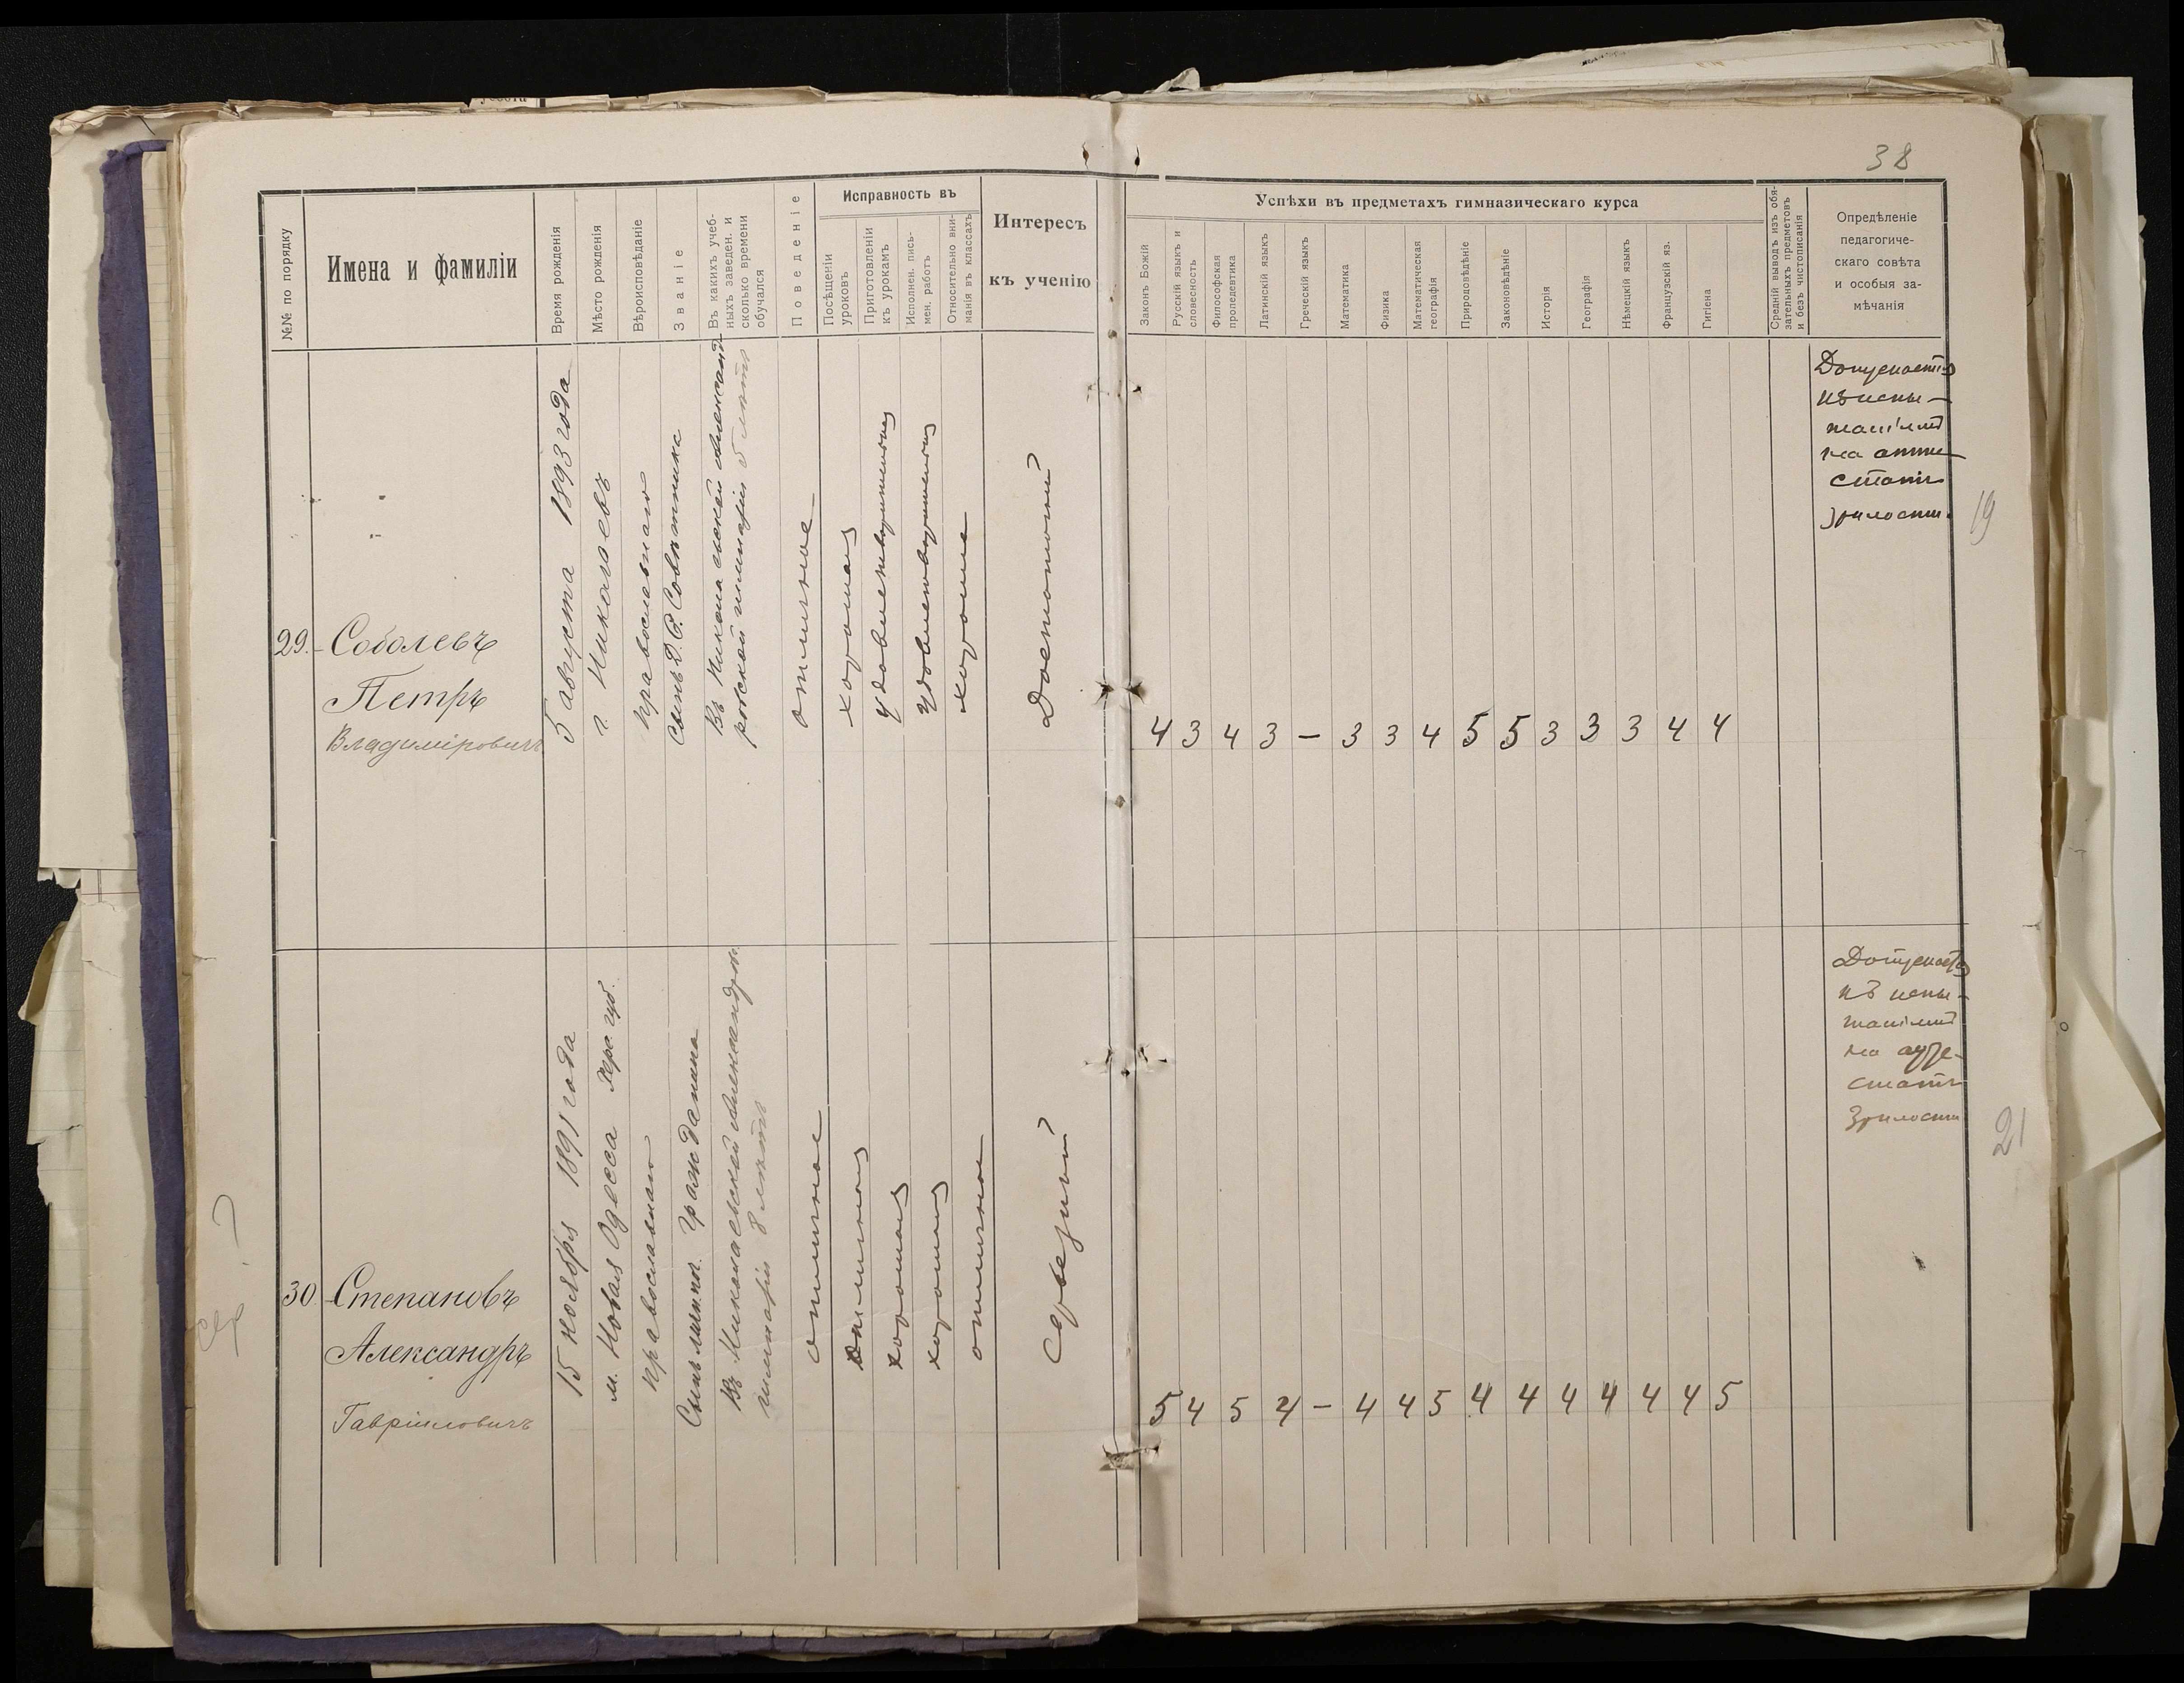 38
№№ по порядку
Имена и фамиліи
Время рожденія
Мѣсто рожденія
Вѣроисповѣданіе
Званіе
Въ какихъ учеб-
ныхъ заведен. и
сколько времени
обучался
Поведеніе
Исправность въ
Посѣщеніи
уроковъ
Приготовленіи
къ урокамъ
Исполнен. пись-
мен. работъ
Относительно вни-
манія въ классахъ
Интересъ
къ ученію
Успѣхи въ предметахъ гимназическаго курса
Законъ Божій
Русскій языкъ и
словесность
Философская
пропедевтика
Латинскій языкъ
Греческій языкъ
Математика
Физика
Математическая
географія
Природовѣдѣніе
Законовѣдѣніе
Исторія
Географія
Нѣмецкій языкъ
Французскій яз.
Гигіена
Средній выводъ изъ обя-
зательныхъ предметовъ
и безъ чистописанія
Опредѣленіе
педагогиче-
скаго совѣта
и особыя за-
мѣчанія
29.
Соболевъ
Петръ
Владиміровичъ
5 августа 1893 года
г. Николаевъ
православнаго
Сынъ Д. С. Совѣтника
Въ Николаевской Александ
ровской гимназіи 5 лѣтъ
отличное
хорошая
удовлетворительная
удовлетворительная
хорошее
Достаточный
4 3 4 3 — 3 3 4 5 5 3 3 3 4 4
Допускается
къ испы-
таніямъ
на атте
статъ
зрѣлости.
19
30
Степановъ
Александръ
Гавріиловичъ
15 ноября 1891 года
м. Новая Одесса Хера. губ.
православнаго
Сынъ лич. поч. гражданина
Въ Николаевской Александров.
гимназіи 8 лѣтъ
отличное
отличная
хорошая
хорошая
отличное
Серьезный
5 4 5 4 — 4 4 5 4 4 4 4 4 4 5
Допускается
къ испы-
таніямъ
на атте-
статъ
Зрѣлости
21